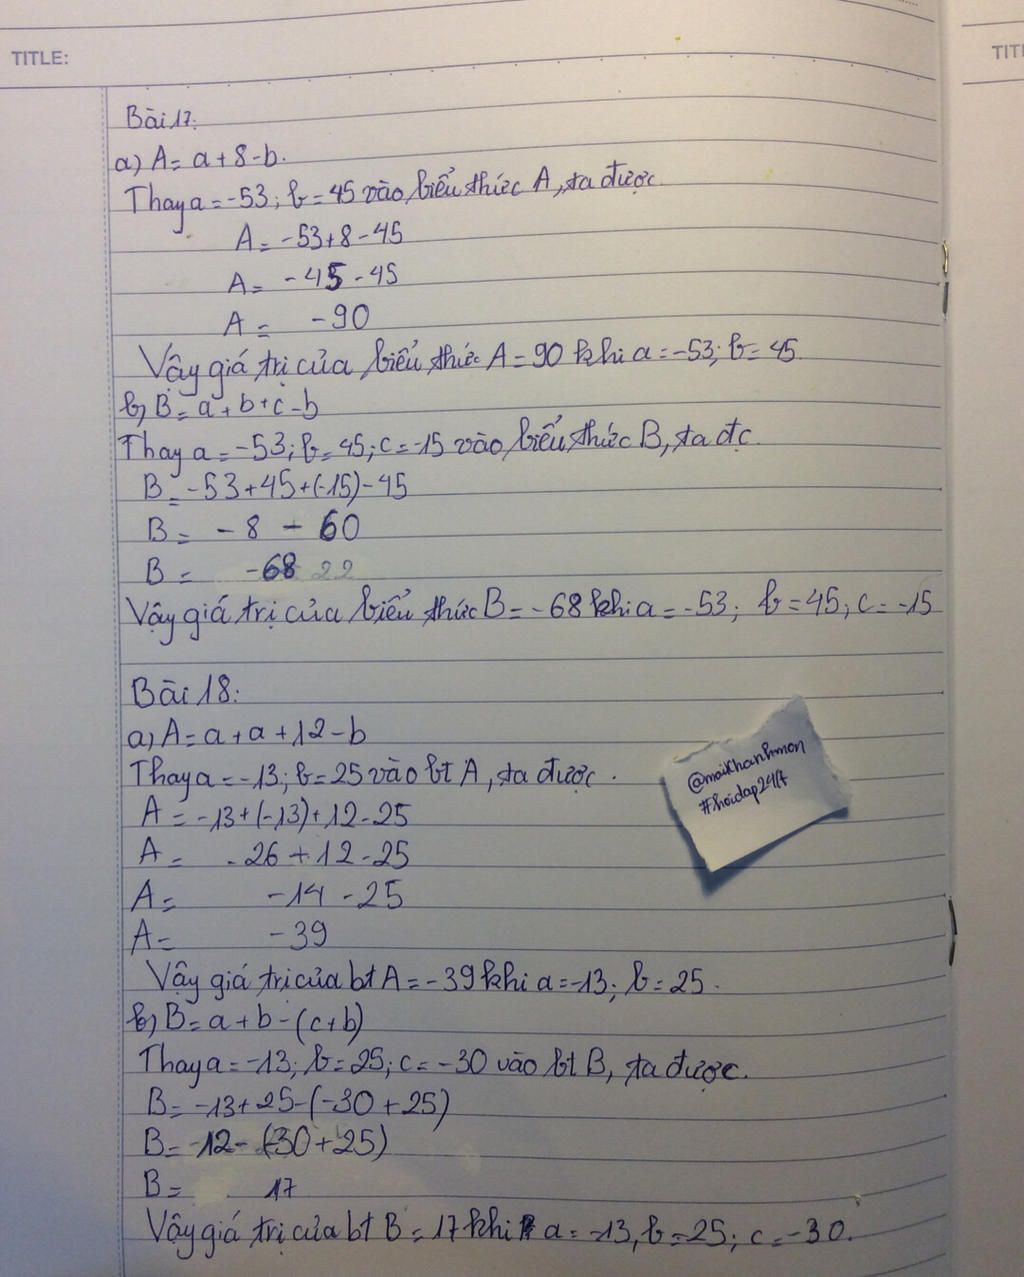 TITLE:
TITL
Bài 17:
a) A = a + 8 - b.
Thay a = -53; b = 45 vào biểu thức A, ta được.
A = -53 + 8 - 45
A = -45 - 45
A = -90
Vậy giá trị của biểu thức A = 90 khi a = -53; b = 45
b) B = a + b + c - b
Thay a = -53; b = 45; c = -15 vào biểu thức B, ta đc.
B = -53 + 45 + (-15) - 45
B = -8 - 60
B = -68 22
Vậy giá trị của biểu thức B = -68 khi a = -53; b = 45; c = -15
Bài 18:
a) A = a + a + 12 - b
Thay a = -13; b = 25 vào bt A, ta được.
A = -13 + (-13) + 12 - 25
A = -26 + 12 - 25
A = -14 - 25
A = -39
Vậy giá trị của bt A = -39 khi a = -13; b = 25.
b) B = a + b - (c + b)
Thay a = -13; b = 25; c = -30 vào bt B, ta được.
B = -13 + 25 - (-30 + 25)
B = -12 - (-30 + 25)
B = 17
Vậy giá trị của bt B = 17 khi a = -13, b = 25; c = -30.
@maikhanhmon
#hoidap247